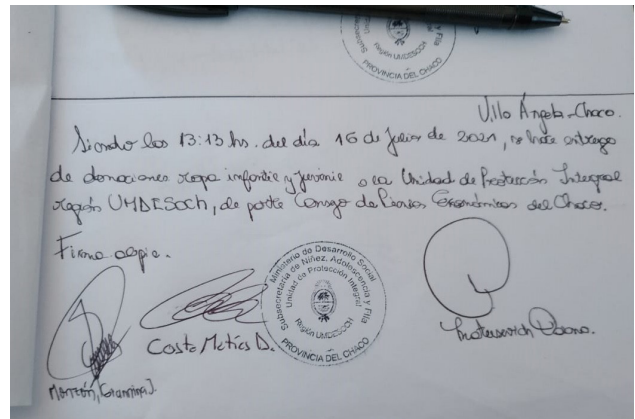 Región UMDESOCH
PROVINCIA DEL CHACO
Villa Ángela - Chaco.
Siendo las 13:13 hs. del día 16 de Julio de 2021, se hace entrega
de donaciones ropa infantil y juvenil a la Unidad de Protección Integral
región UMDESOCH, de parte Consejo de Ciencias Económicas del Chaco.
Firma
Ministerio de Desarrollo Social
Subsecretaría de Niñez, Adolescencia y Flia
Unidad de Protección Integral
Región UMDESOCH
PROVINCIA DEL CHACO
Costa Matías D.